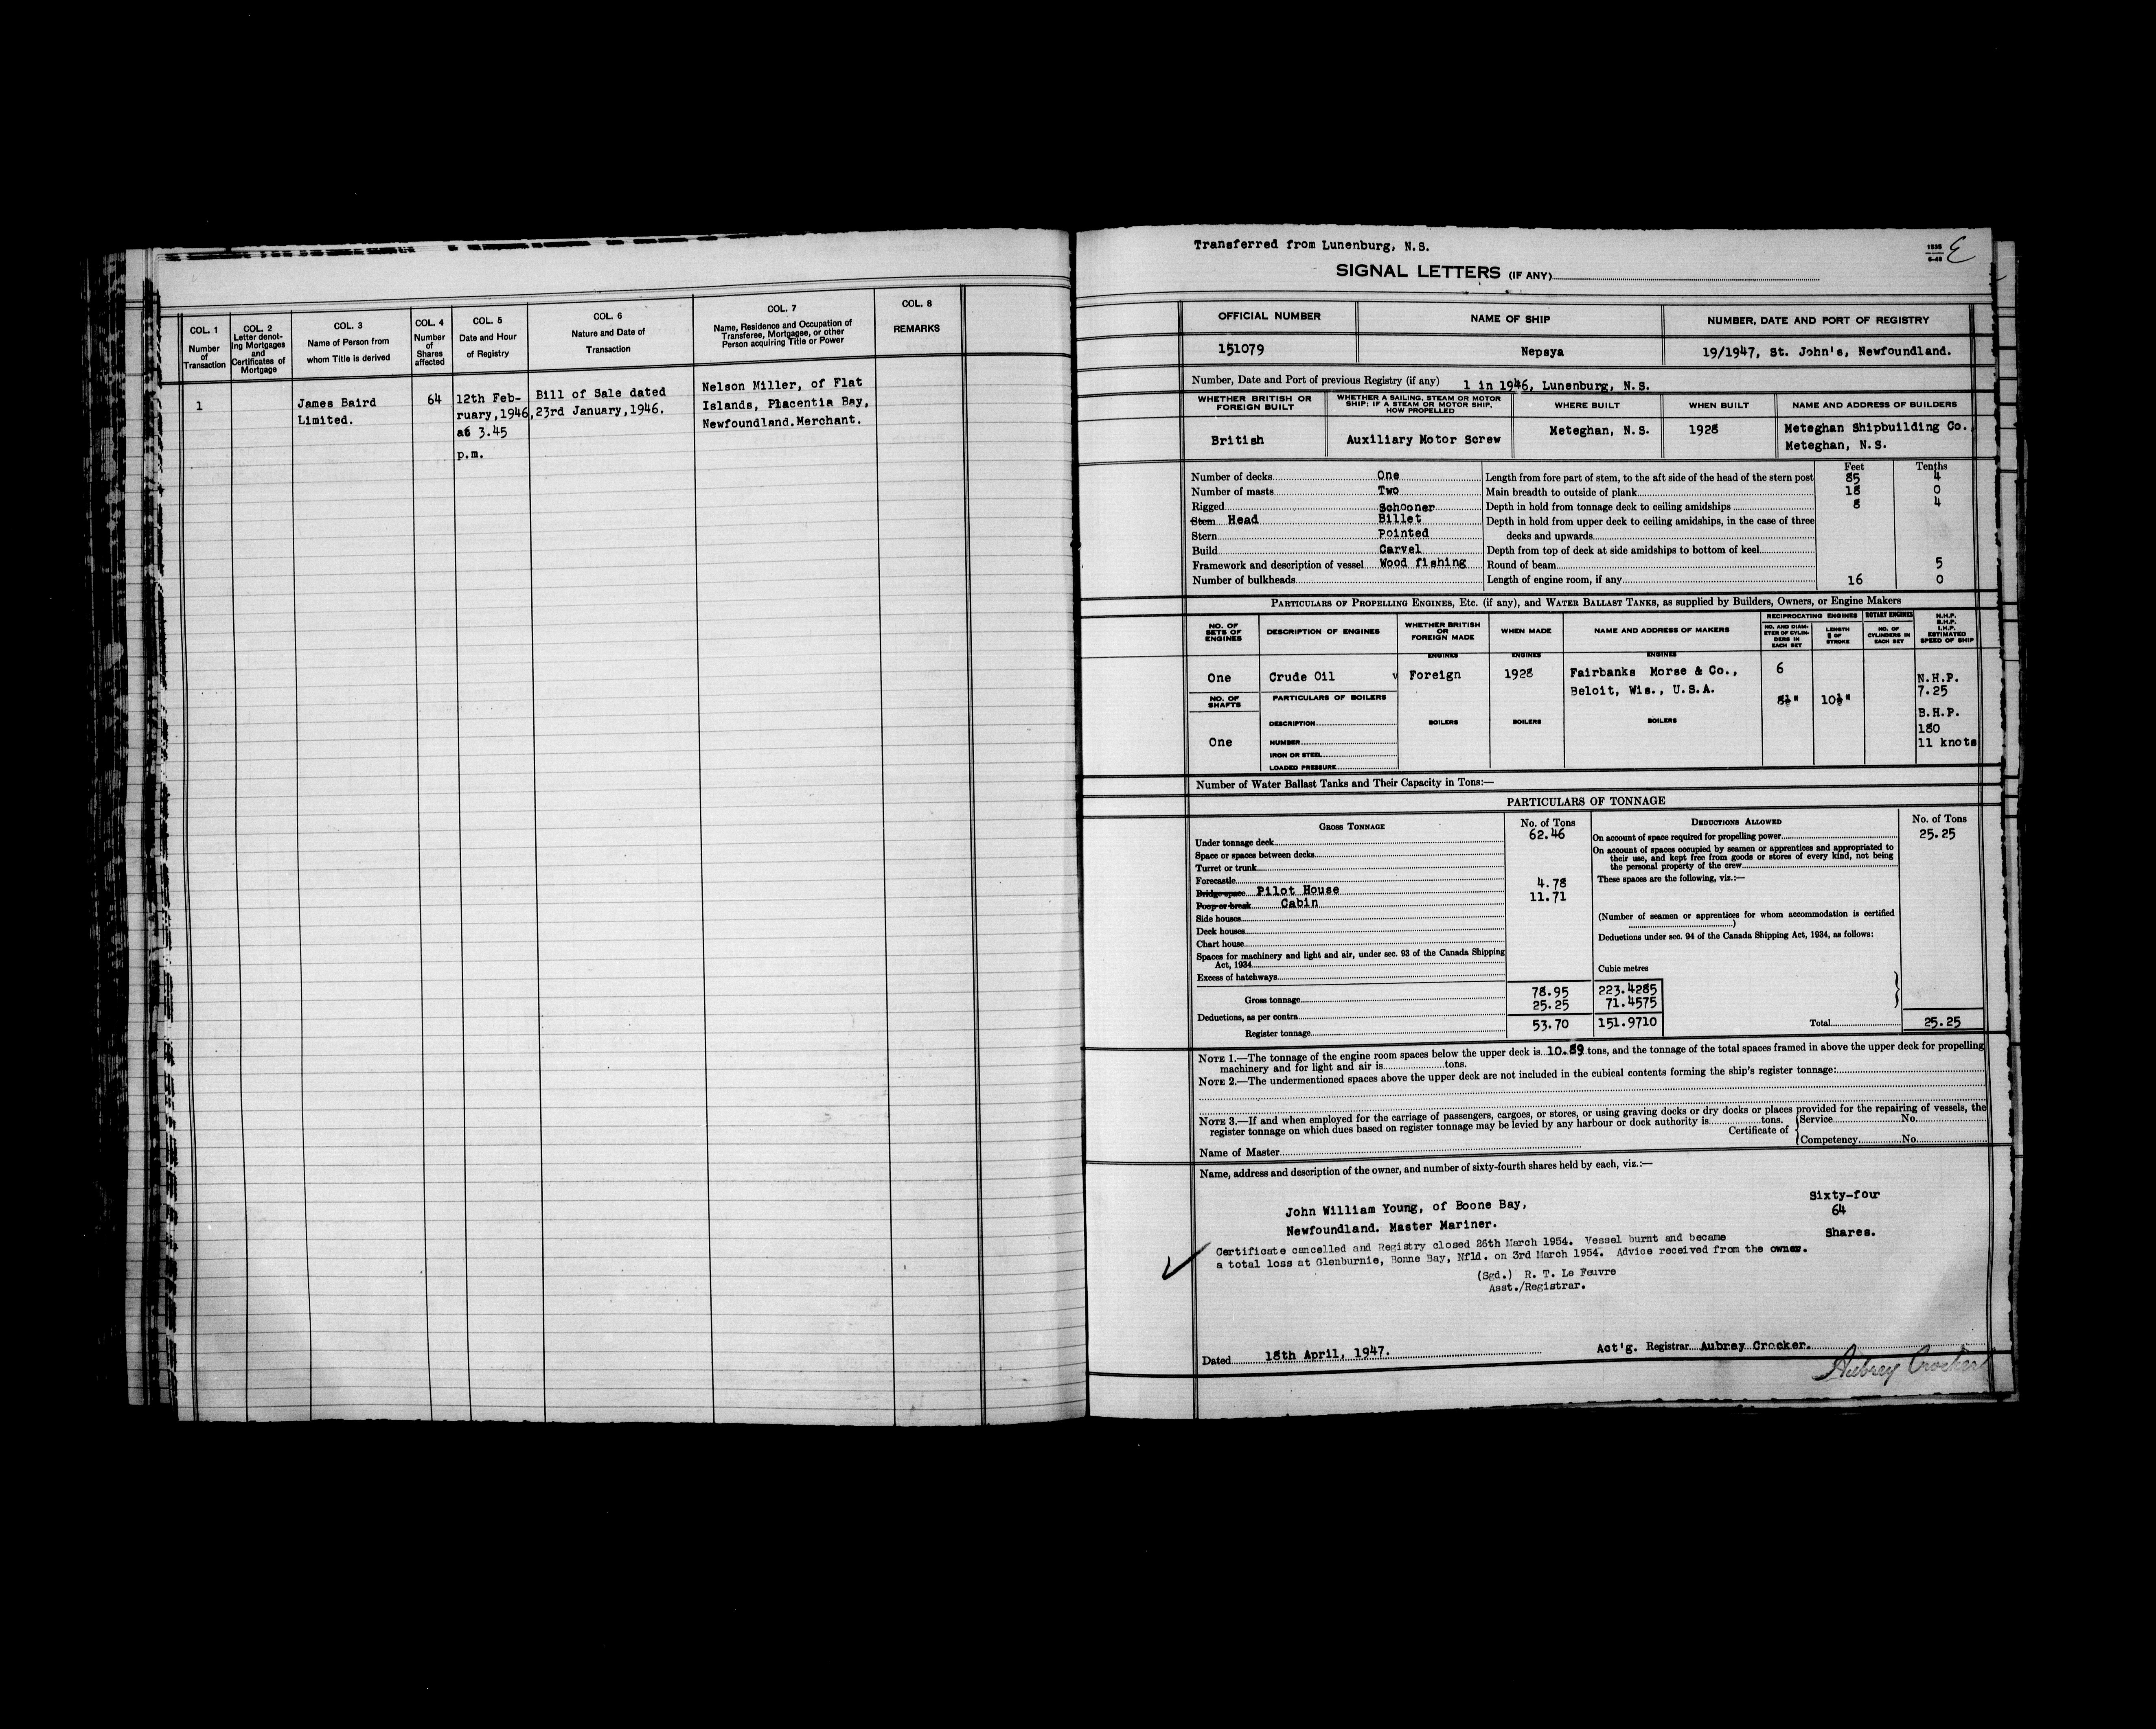 COL. 1
Number
of
Transaction
COL. 2
Letter denot-
ing Mortgages
and
Certificates of
Mortgage
COL. 3
Name of Person from
whom Title is derived
COL. 4
Number
of
Shares
affected
COL. 5
Date and Hour
of Registry
COL. 6
Nature and Date of
Transaction
COL. 7
Name, Residence and Occupation of
Transferee, Mortgagee, or other
Person acquiring Title or Power
COL. 8
REMARKS
1
James Baird
Limited.
64
12th Feb-
ruary,1946,
at 3.45
p.m.
Bill of Sale dated
23rd January,1946.
Nelson Miller, of Flat
Islands, Placentia Bay,
Newfoundland.Merchant.
Transferred from Lunenburg, N.S.
SIGNAL LETTERS (IF ANY)
OFFICIAL NUMBER
NAME OF SHIP
NUMBER, DATE AND PORT OF REGISTRY
151079
Nepsya
19/1947, St. John's, Newfoundland.
Number, Date and Port of previous Registry (if any) 1 in 1946, Lunenburg, N.S.
WHETHER BRITISH OR
FOREIGN BUILT
WHETHER A SAILING, STEAM OR MOTOR
SHIP; IF A STEAM OR MOTOR SHIP,
HOW PROPELLED
WHERE BUILT
WHEN BUILT
NAME AND ADDRESS OF BUILDERS
British
Auxiliary Motor Screw
Meteghan, N.S.
1928
Meteghan Shipbuilding Co.
Meteghan, N.S.
Feet Tenths
Number of decks One
Length from fore part of stem, to the aft side of the head of the stern post 85 4
Number of masts Two
Main breadth to outside of plank 18 0
Rigged Schooner
Depth in hold from tonnage deck to ceiling amidships 8 4
Stem Head Billet
Depth in hold from upper deck to ceiling amidships, in the case of three
Stern Pointed
decks and upwards
Build Carvel
Depth from top of deck at side amidships to bottom of keel
Framework and description of vessel Wood fishing
Round of beam 5
Number of bulkheads
Length of engine room, if any 16 0
PARTICULARS OF PROPELLING ENGINES, ETC. (if any), and WATER BALLAST TANKS, as supplied by Builders, Owners, or Engine Makers
NO. OF
SETS OF
ENGINES
DESCRIPTION OF ENGINES
WHETHER BRITISH
OR
FOREIGN MADE
WHEN MADE
NAME AND ADDRESS OF MAKERS
RECIPROCATING ENGINES
NO. AND DIAM-
ETER OF CYLIN-
DERS IN
EACH SET
LENGTH
OF
STROKE
ROTARY ENGINES
NO. OF
CYLINDERS IN
EACH SET
N.H.P.
B.H.P.
I.H.P.
ESTIMATED
SPEED OF SHIP
ENGINES
ENGINES
ENGINES
One
Crude Oil
Foreign
1928
Fairbanks Morse & Co.,
Beloit, Wis., U.S.A.
6
8½"
10½"
N.H.P.
7.25
B.H.P.
180
11 knots
NO. OF
SHAFTS
One
PARTICULARS OF BOILERS
DESCRIPTION
NUMBER
IRON OR STEEL
LOADED PRESSURE
BOILERS
BOILERS
BOILERS
Number of Water Ballast Tanks and Their Capacity in Tons:—
PARTICULARS OF TONNAGE
GROSS TONNAGE
No. of Tons
Under tonnage deck 62.46
Space or spaces between decks
Turret or trunk
Forecastle
Bridge space Pilot House 4.78
Poop or break Cabin 11.71
Side houses
Deck houses
Chart house
Spaces for machinery and light and air, under sec. 93 of the Canada Shipping
Act, 1934
Excess of hatchways
Cubic metres
Gross tonnage 78.95 223.4285
Deductions, as per contra 25.25 71.4575
Register tonnage 53.70 151.9710
DEDUCTIONS ALLOWED
No. of Tons
On account of space required for propelling power 25.25
On account of spaces occupied by seamen or apprentices and appropriated to
their use, and kept free from goods or stores of every kind, not being
the personal property of the crew
These spaces are the following, viz.:—
(Number of seamen or apprentices for whom accommodation is certified
)
Deductions under sec. 94 of the Canada Shipping Act, 1934, as follows:
Total 25.25
NOTE 1.—The tonnage of the engine room spaces below the upper deck is 10.89 tons, and the tonnage of the total spaces framed in above the upper deck for propelling
machinery and for light and air is tons.
NOTE 2.—The undermentioned spaces above the upper deck are not included in the cubical contents forming the ship's register tonnage:
NOTE 3.—If and when employed for the carriage of passengers, cargoes, or stores, or using graving docks or dry docks or places provided for the repairing of vessels, the
register tonnage on which dues based on register tonnage may be levied by any harbour or dock authority is tons.
Certificate of
Service No.
Competency No.
Name of Master
Name, address and description of the owner, and number of sixty-fourth shares held by each, viz.:—
John William Young, of Boone Bay,
Newfoundland. Master Mariner.
Sixty-four
64
Shares.
Certificate cancelled and Registry closed 26th March 1954. Vessel burnt and became
a total loss at Glenburnie, Bonne Bay, Nfld. on 3rd March 1954. Advice received from the owner.
(Sgd.) R. T. Le Feuvre
Asst./Registrar.
Dated 18th April, 1947.
Act'g. Registrar Aubrey Crocker.
Aubrey Crocker